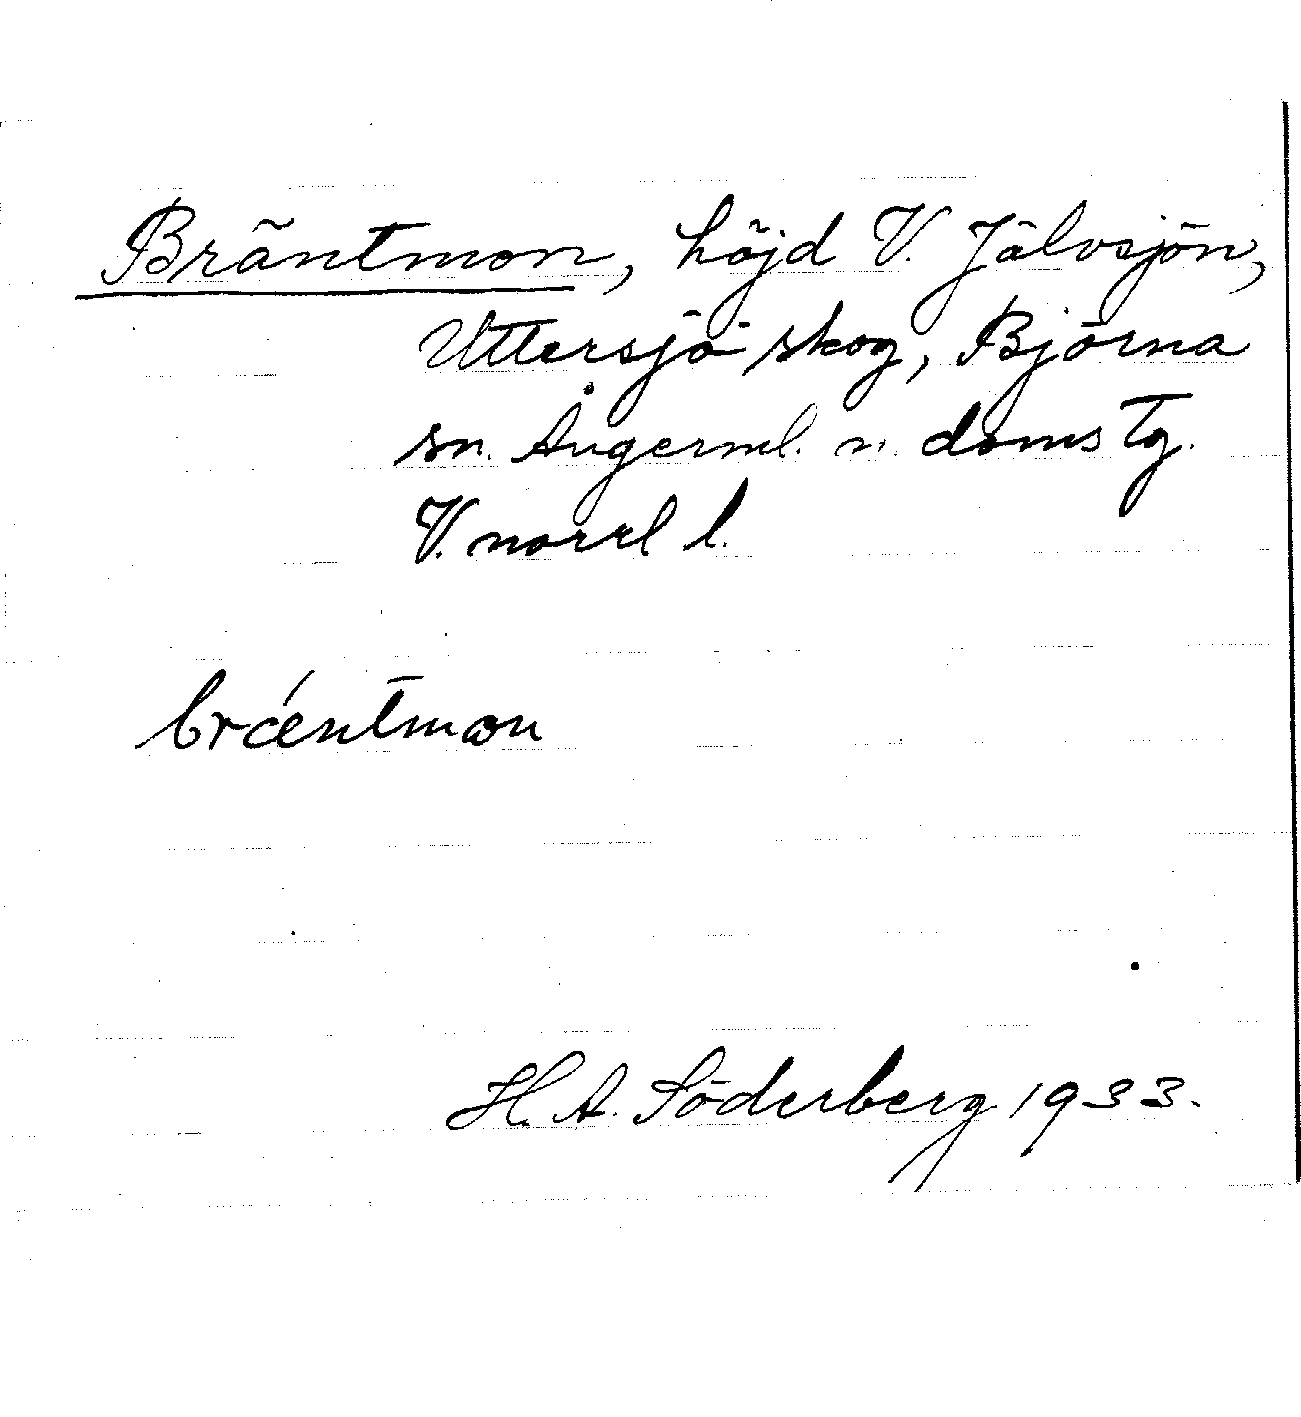 Bräntmon, höjd V. Jälvsjön,
Uttersjö skog, Björna
sn. Ångerml. n. doms tg.
V. norrl l.
brǽntmon
H. A. Söderberg 1933.